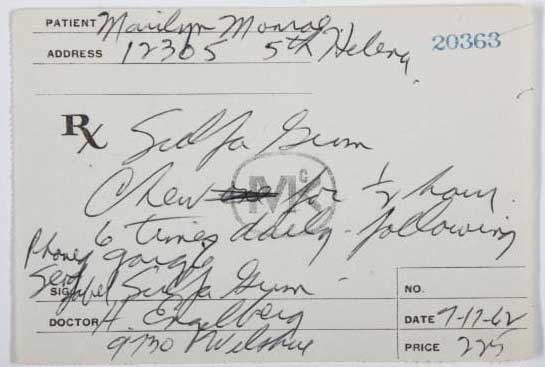 PATIENT Marilyn Monroe
ADDRESS 12305 5th Helena
20363
Rx Sulfa Gum
Chew for 1/2 hour
MCK
6 times daily - following
Phoned gargle
Send
SIG. Label Sulfa Gum -
NO.
DOCTOR H. Engelberg
DATE 7-17-62
9730 Wilshire
PRICE 225